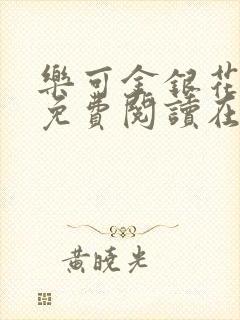 樂可金銀花
免費閱讀在
黃曉光